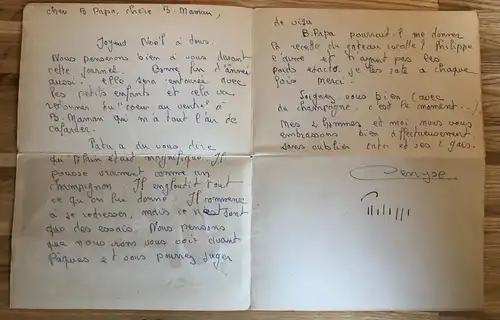 cher B. Papa, chère B. Maman,
Joyeux Noël à tous.
Nous penserons bien à vous durant
cette journée. Bonne fin d'année
aussi. Elle sera entourée avec
les petits enfants et cela va
redonner du "coeur au ventre" à
B. Maman qui m'a tout l'air de
cafarder.
Pata a du vous dire
qu'Alain était magnifique. Il
pousse vraiment comme un
champignon. Il engloutit tout
ce qu'on lui donne. Il commence
à se redresser, mais ce ne sont
que des essais. Nous pensons
que nous irons vous voir avant
Pâques et vous pourrez juger
de visu
B. Papa pourrait-il me donner
la recette du gateau écossais? Philippe
l'adore et n'ayant pas les
poids exacts, je les rate à chaque
fois. Merci.
Soignez vous bien (avec
du champagne, c'est le moment...)
Mes 2 hommes et moi nous vous
embrassons bien affectueusement
sans oublier et ses 2 gars.